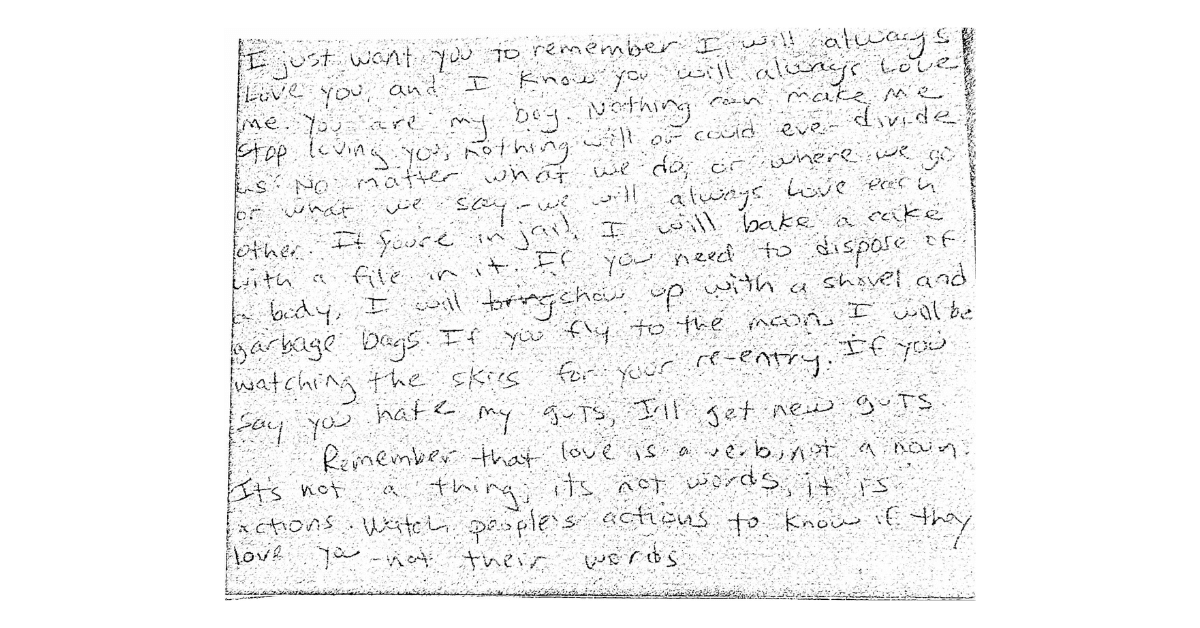 I just want you to remember I will always
Love you, and I know you will always Love
me. You are my boy. Nothing can make me
stop loving you, nothing will or could ever divide
us. No matter what we do, or where we go
or what we say - we will always Love each
other. If you're in jail, I will bake a cake
with a file in it. If you need to dispose of
a body, I will bring show up with a shovel and
garbage bags. If you fly to the moon, I will be
watching the skies for your re-entry. If you
say you hate my guts, I'll get new guts.
Remember that love is a verb, not a noun.
It's not a thing, its not words, it is
actions. Watch people's actions to know if they
love you - not their words